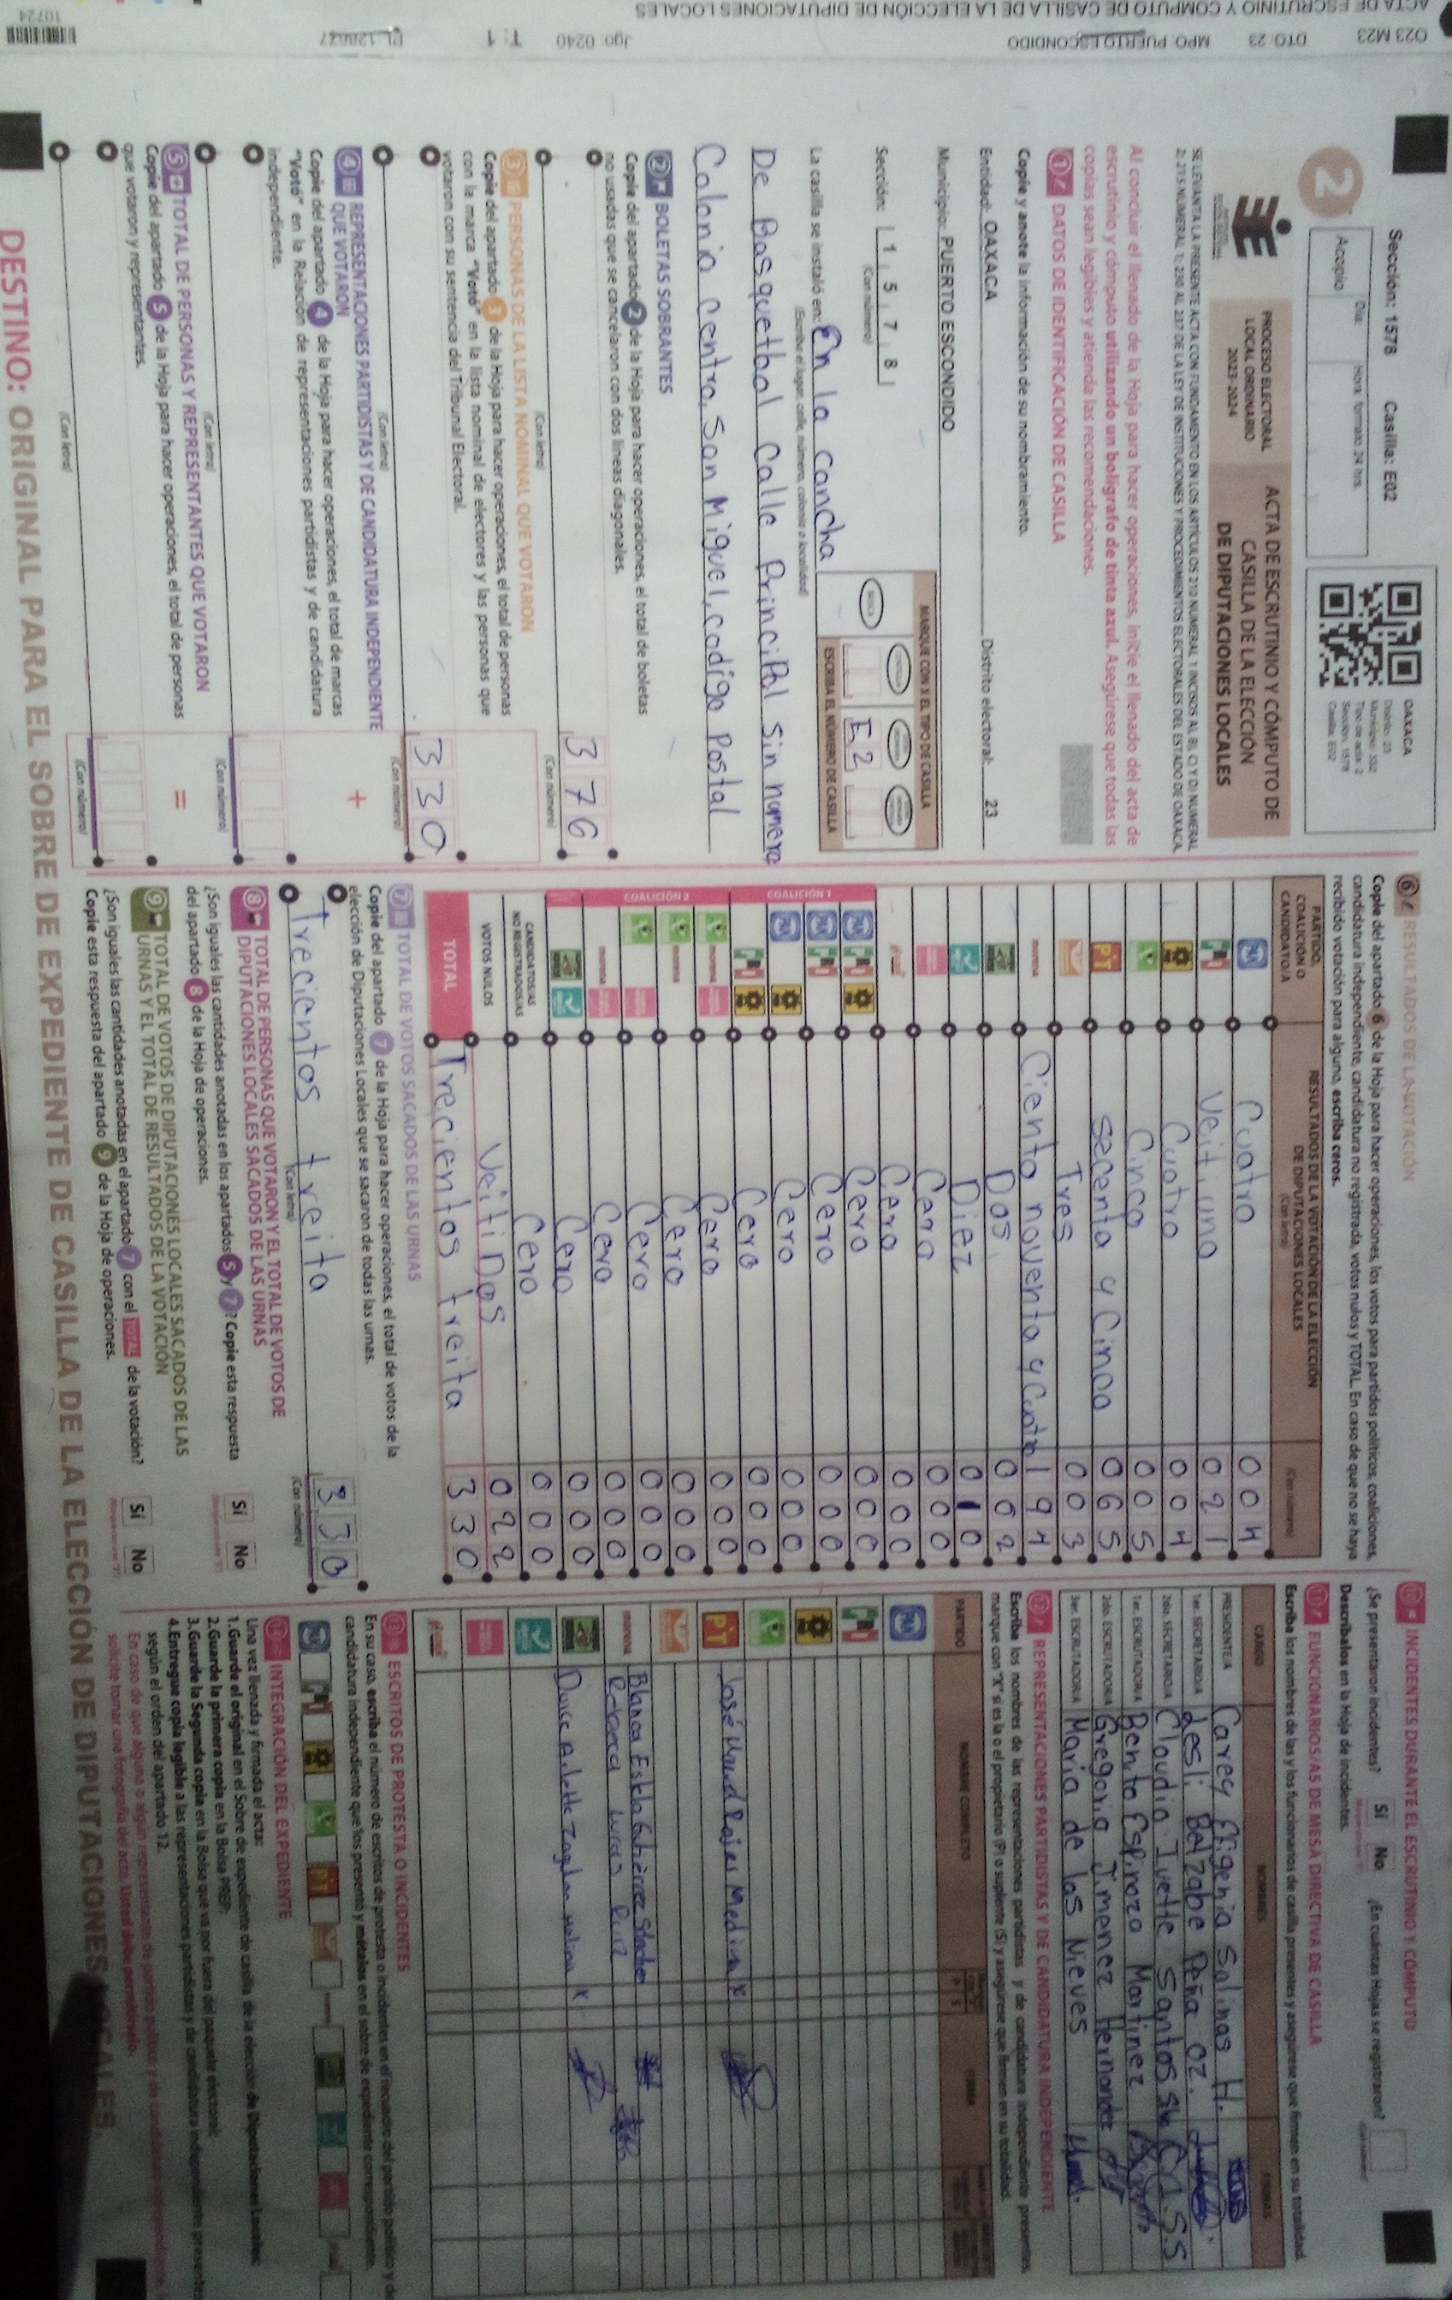 Sección: 1578 Casilla: E02
Día: Hora: formato 24 hrs.
Acopio
2
OAXACA
Distrito: 23
Tipo de acta: 2
Sección: 1578
Casilla: E02
PROCESO ELECTORAL
LOCAL ORDINARIO
2023-2024
ACTA DE ESCRUTINIO Y CÓMPUTO DE
CASILLA DE LA ELECCIÓN
DE DIPUTACIONES LOCALES
Al concluir el llenado de la Hoja para hacer operaciones, inicie el llenado del acta de
escrutinio y cómputo utilizando un bolígrafo de tinta azul. Asegúrese que todas las
copias sean legibles y atienda las recomendaciones.
1 DATOS DE IDENTIFICACIÓN DE CASILLA
Copie y anote la información de su nombramiento.
Entidad: OAXACA Distrito electoral: 23
Municipio: PUERTO ESCONDIDO
Sección: 1 5 7 8
(Con número)
MARQUE CON X EL TIPO DE CASILLA
E2
ESCRIBA EL NÚMERO DE CASILLA
La casilla se instaló en: En la cancha
(Escriba el lugar, calle, número, colonia o localidad)
De Basquetbol Calle Principal Sin numero
Colonia Centro, San Miguel, Codigo Postal
2 BOLETAS SOBRANTES
Copie del apartado 2 de la Hoja para hacer operaciones, el total de boletas
no usadas que se cancelaron con dos líneas diagonales.
376
(Con letra) (Con número)
3 PERSONAS DE LA LISTA NOMINAL QUE VOTARON
Copie del apartado 3 de la Hoja para hacer operaciones, el total de personas
con la marca "Votó" en la lista nominal de electores y las personas que
votaron con su sentencia del Tribunal Electoral.
330
(Con letra) (Con número)
4 REPRESENTACIONES PARTIDISTAS Y DE CANDIDATURA INDEPENDIENTE
QUE VOTARON +
Copie del apartado 4 de la Hoja para hacer operaciones, el total de marcas
"Votó" en la Relación de representaciones partidistas y de candidatura
independiente.
(Con letra) (Con número)
5 TOTAL DE PERSONAS Y REPRESENTANTES QUE VOTARON =
Copie del apartado 5 de la Hoja para hacer operaciones, el total de personas
que votaron y representantes.
(Con letra) (Con número)
6 RESULTADOS DE LA VOTACIÓN
Copie del apartado 6 de la Hoja para hacer operaciones, los votos para partidos políticos, coaliciones,
candidatura independiente, candidatura no registrada, votos nulos y TOTAL. En caso de que no se haya
recibido votación para alguno, escriba ceros.
PARTIDO, COALICIÓN O CANDIDATO/A
RESULTADOS DE LA VOTACIÓN DE LA ELECCIÓN
DE DIPUTACIONES LOCALES
(Con letra) (Con número)
PAN Cuatro 004
PRI Veit.uno 021
PRD Cuatro 004
Cinco 005
PT secenta y Cinco 065
Tres 003
morena Ciento noventa y Cuatro 194
Dos 002
Diez 010
Cero 000
Cero 000
COALICIÓN 1
Cero 000
Cero 000
Cero 000
Cero 000
COALICIÓN 2
Cero 000
Cero 000
Cero 000
Cero 000
Cero 000
CANDIDATOS/AS NO REGISTRADOS/AS Cero 000
VOTOS NULOS VeitiDos 022
TOTAL Trecientos treita 330
7 TOTAL DE VOTOS SACADOS DE LAS URNAS
Copie del apartado 7 de la Hoja para hacer operaciones, el total de votos de la
elección de Diputaciones Locales que se sacaron de todas las urnas.
Trecientos treita 330
(Con letra) (Con número)
8 TOTAL DE PERSONAS QUE VOTARON Y EL TOTAL DE VOTOS DE
DIPUTACIONES LOCALES SACADOS DE LAS URNAS
¿Son iguales las cantidades anotadas en los apartados 5 y 7? Copie esta respuesta
del apartado 8 de la Hoja de operaciones. Sí No
9 TOTAL DE VOTOS DE DIPUTACIONES LOCALES SACADOS DE LAS
URNAS Y EL TOTAL DE RESULTADOS DE LA VOTACIÓN
¿Son iguales las cantidades anotadas en el apartado 7 con el TOTAL de la votación?
Copie esta respuesta del apartado 9 de la Hoja de operaciones. Sí No
10 INCIDENTES DURANTE EL ESCRUTINIO Y CÓMPUTO
¿Se presentaron incidentes? Sí No ¿En cuántas Hojas se registraron?
Descríbalos en la Hoja de incidentes.
11 FUNCIONARIOS/AS DE MESA DIRECTIVA DE CASILLA
Escriba los nombres de las y los funcionarios de casilla presentes y asegúrese que firmen en su totalidad.
CARGO NOMBRES FIRMAS
PRESIDENTE/A Carey Efigenia Salinas H.
1er. SECRETARIO/A Lesli Belzabe Peña oz.
2do. SECRETARIO/A Claudia Ivette Santos C.I.S.S
1er. ESCRUTADOR/A Benito Espinoza Martinez
2do. ESCRUTADOR/A Gregoria Jimenez Hernandez
3er. ESCRUTADOR/A Maria de las Nieves
12 REPRESENTACIONES PARTIDISTAS Y DE CANDIDATURA INDEPENDIENTE
Escriba los nombres de las representaciones partidistas y de candidatura independiente presentes,
marque con "X" si es la o el propietario (P) o suplente (S) y asegúrese que firmen en su totalidad.
PARTIDO NOMBRE COMPLETO FIRMA
PT José Rojas Medina x
morena Blanca Estela Gutiérrez
Dulce Molina x
13 ESCRITOS DE PROTESTA O INCIDENTES
En su caso, escriba el número de escritos de protesta o incidentes en el recuadro del partido político y de
candidatura independiente que los presentó y métalas en el sobre de expediente correspondiente.
14 INTEGRACIÓN DEL EXPEDIENTE
Una vez llenada y firmada el acta:
1. Guarde el original en el Sobre de expediente de casilla de la elección de Diputaciones Locales;
2. Guarde la primera copia en la Bolsa PREP;
3. Guarde la Segunda copia en la Bolsa que va por fuera del paquete electoral;
4. Entregue copia legible a las representaciones partidistas y de candidatura independiente presentes
según el orden del apartado 12.
DESTINO: ORIGINAL PARA EL SOBRE DE EXPEDIENTE DE CASILLA DE LA ELECCIÓN DE DIPUTACIONES LOCALES
O23 M23 DTO: 23 MPO: PUERTO ESCONDIDO Jgo: 0240 T: 1
ACTA DE ESCRUTINIO Y COMPUTO DE CASILLA DE LA ELECCIÓN DE DIPUTACIONES LOCALES
10724